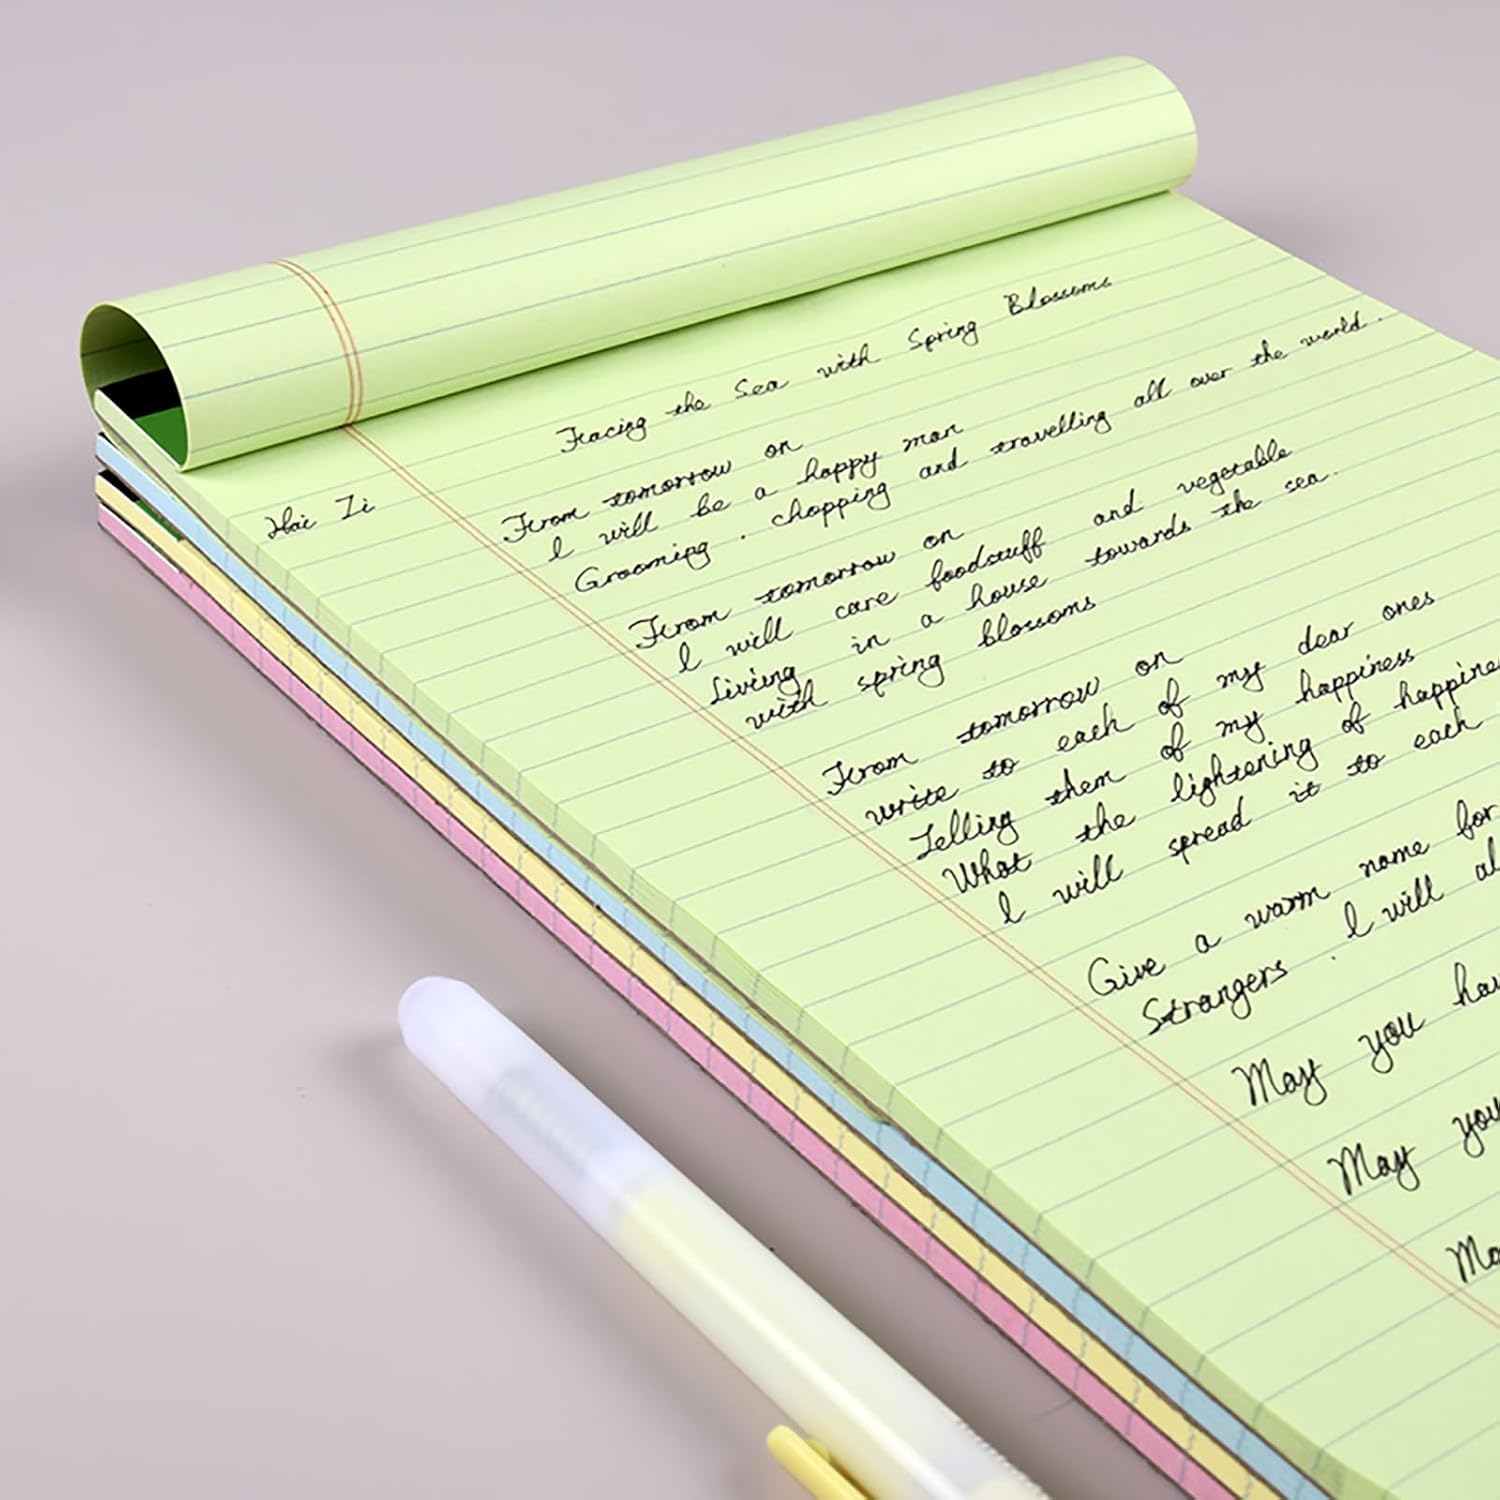 Facing the Sea with Spring Blossoms
Hai Zi
From tomorrow on
I will be a happy man
Grooming. chopping and travelling all over the world.
From tomorrow on
I will care foodstuff and vegetable
Living in a house towards the sea.
with spring blossoms
From tomorrow on
write to each of my dear ones
Telling them of my happiness
What the lightening of happine
I will spread it to each
Give a warm name for
Strangers. I will al
May you hav
May you
Ma